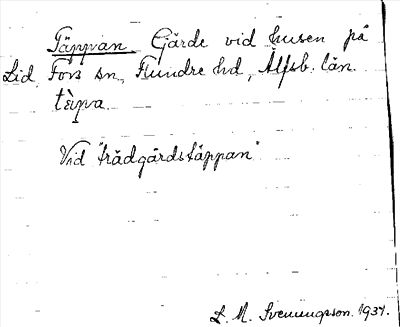 Täppan Gärde vid husen på
Lid, Fors sn, Flundre hd, Älfsb. län.
tèpa
Vid "trädgårdstäppan"
L. M. Svenungsson. 1937.